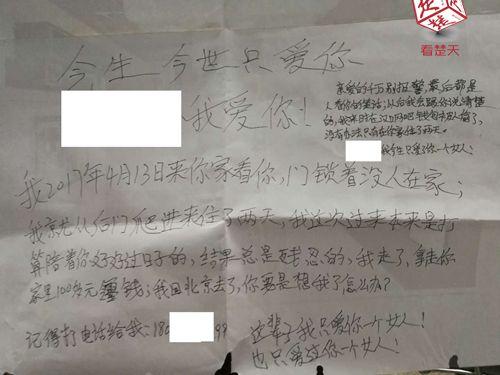 看楚天
今生 今世只爱你
我爱你!
亲爱的千万别报警,最后都是
人看你的笑话;以后我会跟你说清楚
的,我来时在汉口网吧钱包被人偷了,
没有办法只有在你家住了两天。
我今生只爱了你一个女人!
我2017年4月13日来你家看你,门锁着没人在家;
我就从后门爬进来住了两天,我这次过来本来是打
算陪着你好好过日子的,结果总是残忍的,我走了,拿走你
家里100多元零钱;我回北京去了,你要是想我了怎么办?
记得打电话给我:18 99 这辈子我只爱你一个女人!
也只爱过你一个女人!